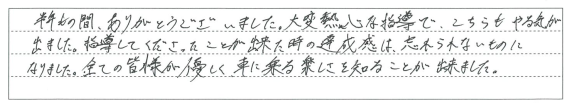 半年の間、ありがとうございました。大変熱心な指導で、こちらもやる気が
出ました。指導してくださったことが出来た時の達成感は、忘れられないものに
なりました。全ての皆様が優しく、車に乗る楽しさを知ることが出来ました。